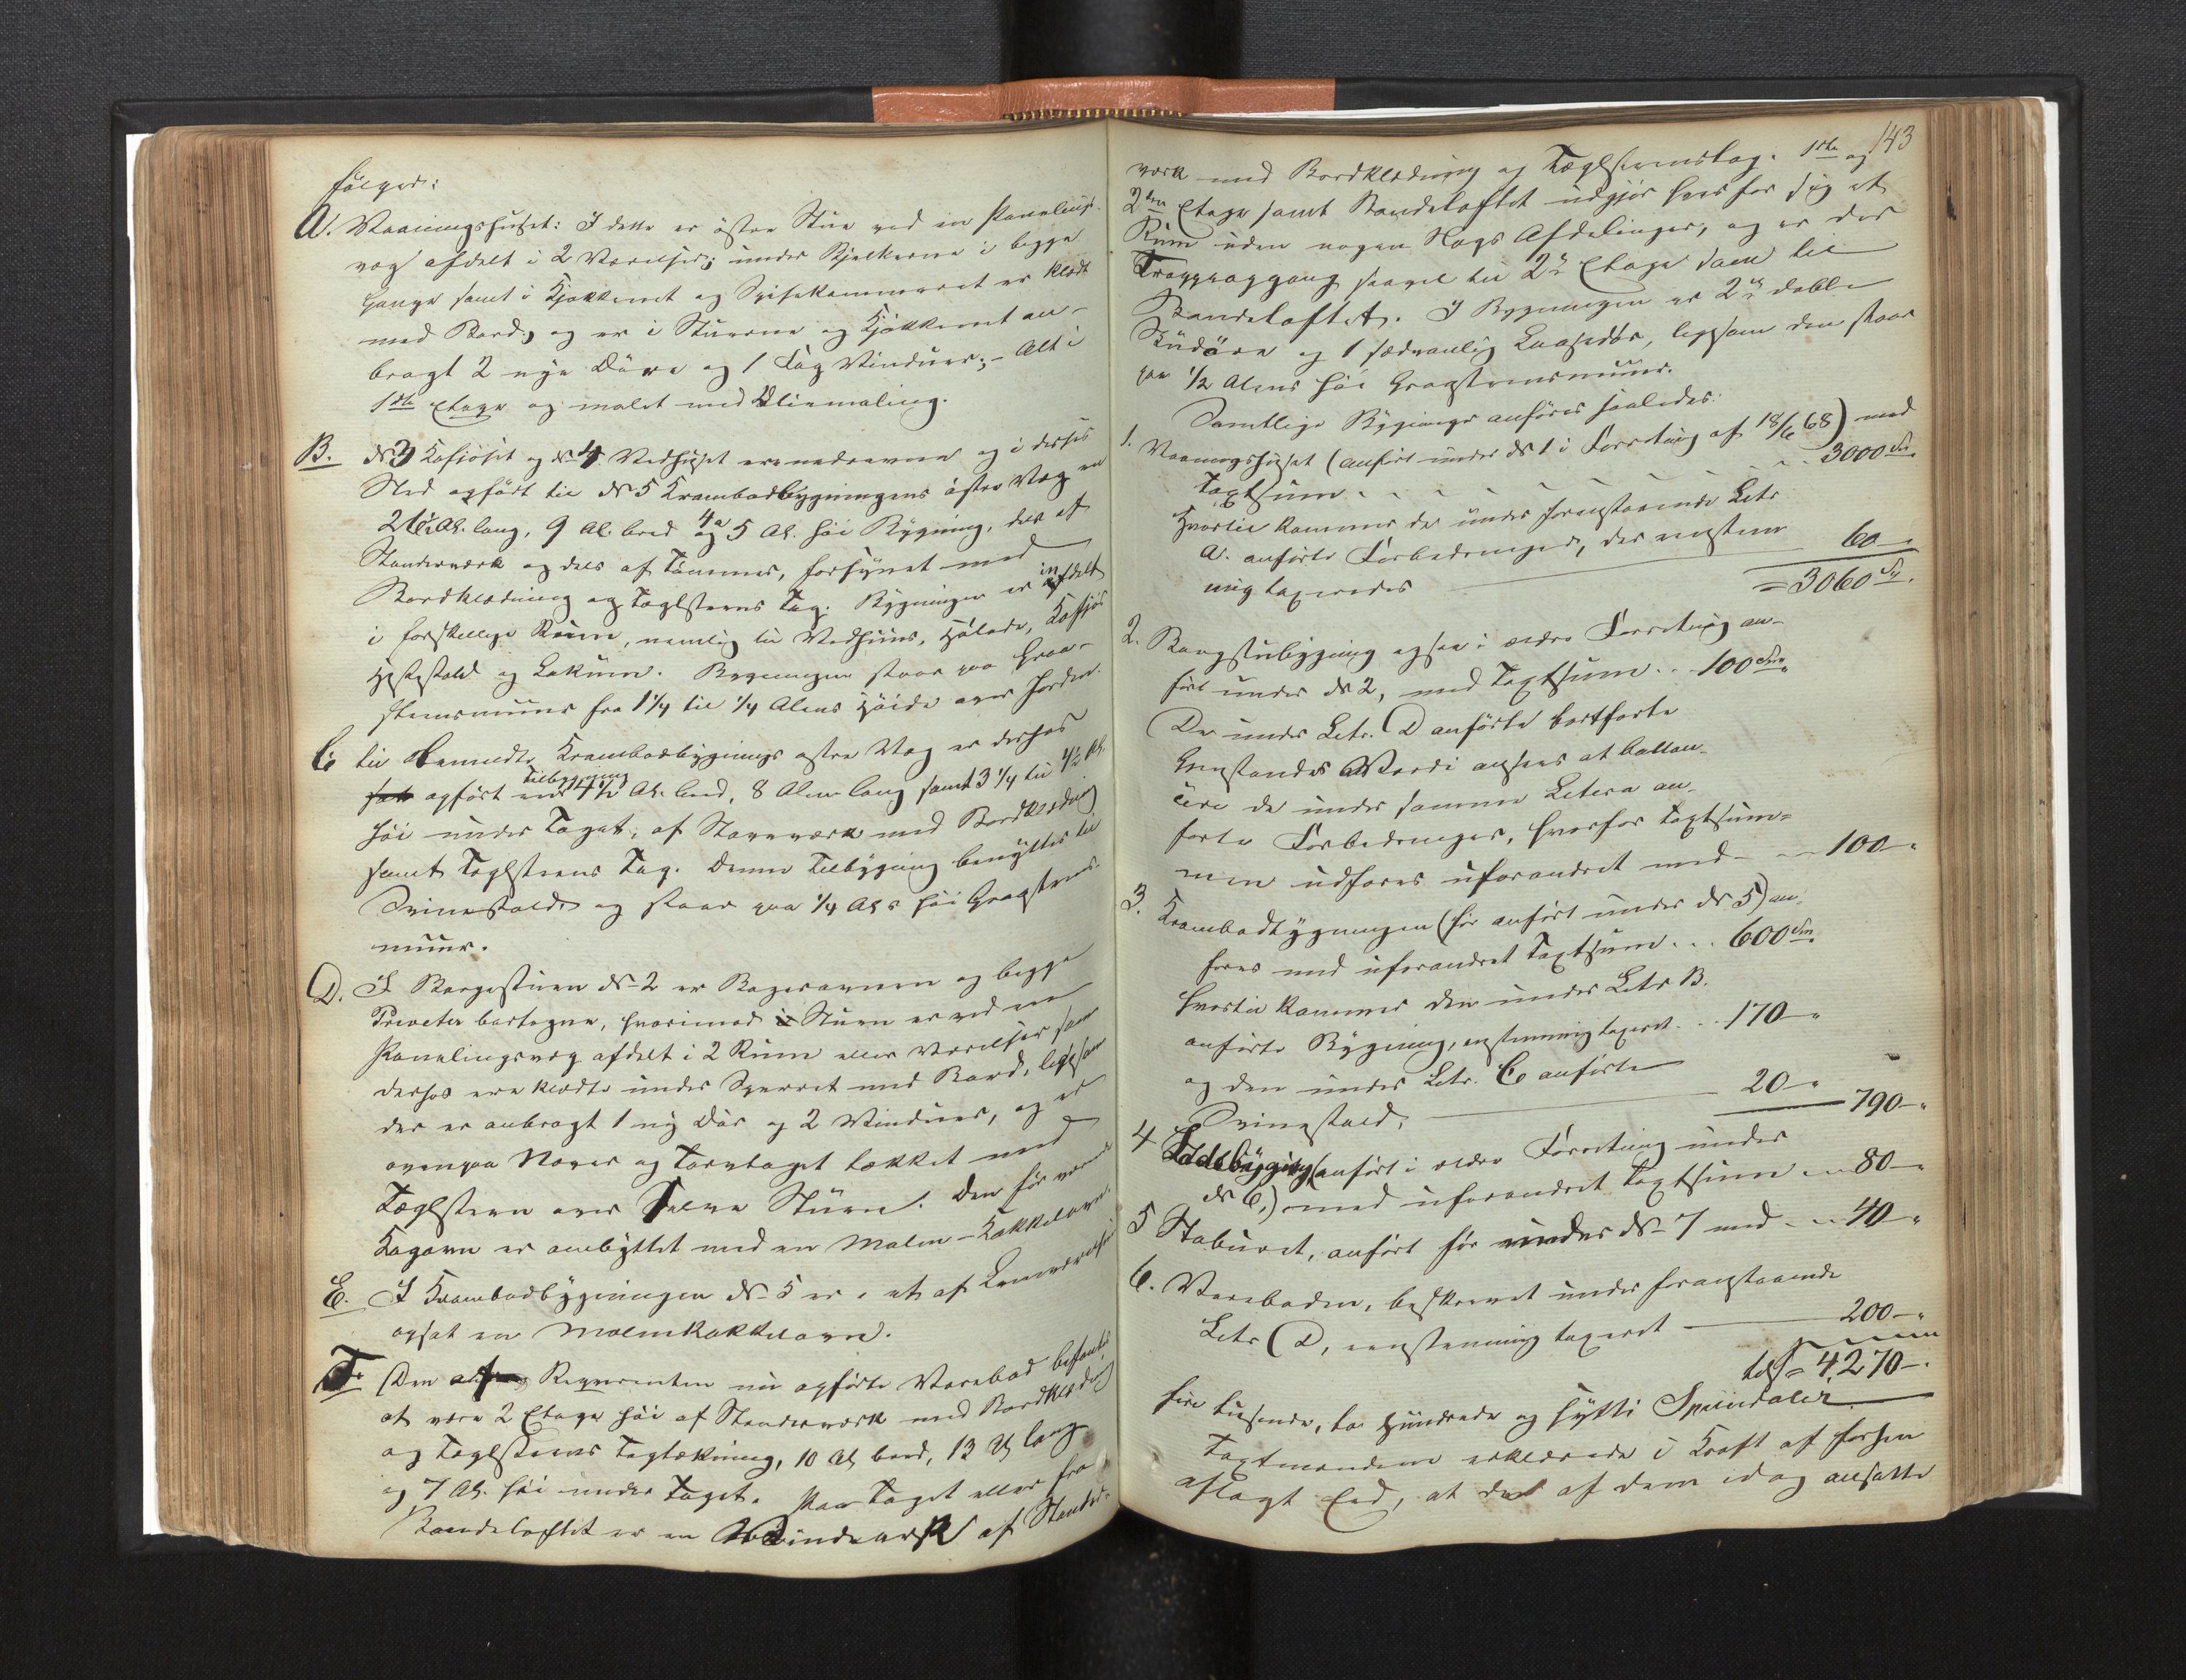 følger:
A. Vaaningshuset: I dette er østre Stue ved en Panelings-
væg afdelt i 2 Værelser; under Bjelkerne i begge
Gange samt i Kjøkkenet og Spisekammeret er klædt
med Bord, og er i Stuerne og Kjøkkenet an-
bragt 2 nye Døre og 1 Fag Vinduer; - Alt i
1ste Etage og malet med Oliemaling.
B. No 3 Kofjøset og No 4 Vedhuset ere nedrevne og i desses
Sted opført til No 5 Krambodbygningens østre Væg en
Al. lang, 9 Al. bred 4 a 5 Al. høi Bygning, dels af
Standerværk og dels af Tømmer, forsynet med
Bordklædning og Taglsteens Tag. Bygningen er inddelt
i forskellige Rum, nemlig til Vedhuus, Hølade, Kofjøs
Hestestald og Lokum. Bygningen staar paa Graa-
steensmuur fra 1 1/4 til 1/4 Alens Høide over Jorden.
C til bemeldte Krambodbygnings østre Væg er derhos
opført en Tilbygning 4 1/2 Al. bred, 8 Alen lang samt 3 1/4 til 4 1/2 Al.
høi under Taget, af Stavværk med Bordklædning
samt Taglsteens Tag. Denne Tilbygning benyttes til
Svinestald og staar paa 1/4 Al. høi Graasteens-
muur.
D. I Borgestuen No 2 er Bagerovnen og begge
Preveter borttagne, hvorimod Stuen er ved en
Panelingsvæg afdelt i 2 Rum eller Værelser som
derhos ere klædte under Sperret med Bord, ligesom
der er anbragt 1 ny Dør og 2 Vinduer, og er
ovenpaa Næver og Torvtaget lækket med
Taglsteen over selve Stuen. Den før værende
Kogovn er ombyttet med en Malm-Kakkelovn.
E. I Krambodbygningen No 5 er i et af
opsat en Malmkakkelovn.
F. Den af Reqvirenten nu opførte Varebod befantes
at være 2 Etager høi af Stenderværk med Bordklædning
og Taglsteens Taglækning, 10 Al. bred, 13 Al. lang
og 7 Al. høi under Taget. Paa Taget eller fra
Bandeloftet er en Vindeark af Stander-
143
værk med Bordklædning og Taglsteenstag. 1ste og
2den Etage samt Bandeloftet udgjør hver for sig et
Rum uden nogen Slags Afdelinger, og er der
Trappeopgang saavel til 2den Etage som til
Bandeloftet. I Bygningen er 2de doble
og 1 sædvanlig Laasedør, ligesom den staar
paa 1/2 Alens høi Graasteensmuur.
Samtlige Bygninger anføres saaledes:
1. Vaaningshuset (anført under No 1 i Forretning af 18/6 68) med
Taxtsum - - - - - 3000 Spd.
Hvortil kommer de under foranstaaende Litr
A. anførte Forbedringer, der eenstem-
mig taxeredes 60 -
= 3060 Spd.
2. Borgstubygning ogsaa i ældre Forretning an-
ført under No 2, med Taxtsum - - 100 Spd.
De under Litr. D anførte bortførte
Gjenstandes Værdi ansees at ballan-
cere de under samme Litera an-
førte Forbedringer, hvorfor Taxtsum-
men udføres uforandret med - - 100 -
3. Krambodbygningen (før anført under No 5) an-
føres med uforandret Taxtsum - - 600 Spd.
hvortil kommer den under Litr B.
anførte Bygning, enstemmig taxeret - - 170 -
og den under Litr. C anførte
Svinestald, 20 - 790 -
4 Ladebygning (anført i ældre Forretning under
No 6,) med uforandret Taxtsum - - 80 -
5 Staburet, anført før under No 7 med - - 40 -
6. Vareboden, beskrevet under foranstaaende
Litr D, eenstemmig taxeret 200 -
tils = 4270 -
fire tusende, to hundrede og sytti Speciedaler
Taxtmændene erklærede i Kraft af forhen
aflagt Eed, at de af dem idag ansatte